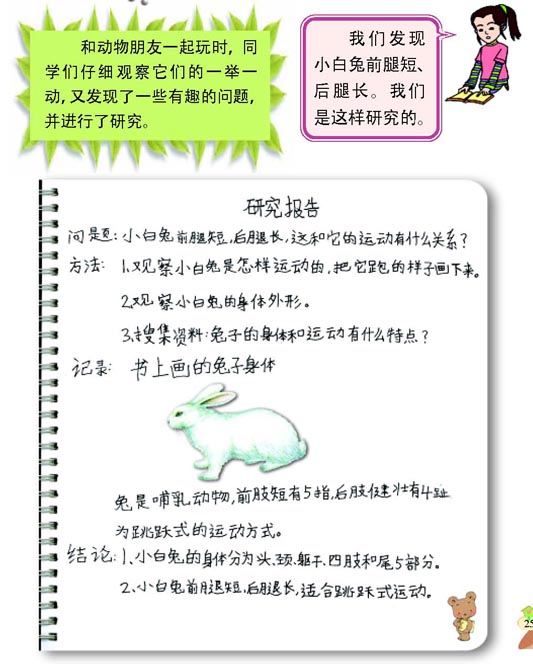 和动物朋友一起玩时，同
学们仔细观察它们的一举一
动，又发现了一些有趣的问题，
并进行了研究。
我们发现
小白兔前腿短、
后腿长。我们
是这样研究的。
研究报告
问题：小白兔前腿短，后腿长，这和它的运动有什么关系？
方法：1.观察小白兔是怎样运动的，把它跑的样子画下来。
2.观察小白兔的身体外形。
3.搜集资料：兔子的身体和运动有什么特点？
记录：书上画的兔子身体
兔是哺乳动物，前肢短有5指，后肢健壮有4趾
为跳跃式的运动方式。
结论：1、小白兔的身体分为头、颈、躯干、四肢和尾5部分。
2、小白兔前腿短，后腿长，适合跳跃式运动。
25